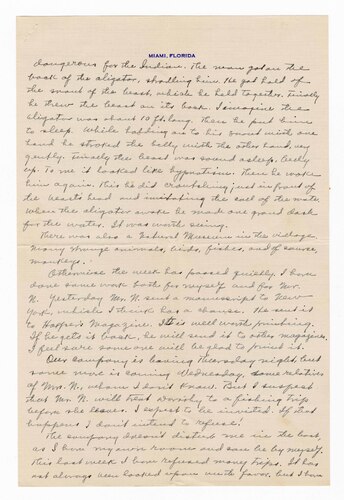 MIAMI, FLORIDA
dangerous for the Indian. The man got on the
back of the aligator, stradling him. He got hold of
the snout of the beast, which he held together. Finally
he threw the beast on its back. I imagine the
aligator was about 10 ft. long. Then he put him
to sleep. While holding on to his snout with one
hand he stroked the belly with the other hand, very
gently. Finally the beast was sound asleep, belly
up. To me it looked like hypnotism. Then he woke
him again. This he did crouching just in front of
the beasts head and imitating the call of the mate.
When the aligator awoke he made one grand dash
for the water. It was worth seeing.
There was also a Natural Museum in the village.
Many strange animals, birds, fishes, and, of course,
monkeys.
Otherwise the week has passed quietly. I have
done some work both for myself and for Mr.
N. Yesterday Mr. N. sent a manuscript to New
York, which I think has a chance. He sent it
to Harpers Magazine. It is well worth printing.
If he gets it back, he will send it to other magazines.
I feel sure some one will be glad to print it.
Our company is leaving Thursday night, but
some more is coming Wednesday, some relatives
of Mrs. N., whom I don't know. But I suspect
that Mr. N. will treat to a fishing trip
before she leaves. I expect to be invited. If that
happens I don't intend to refuse!
The company doesn't disturb me in the least,
as I have my own rooms and can be by myself.
This last week I have refused many trips. It has
not always been looked upon with favor, but I have